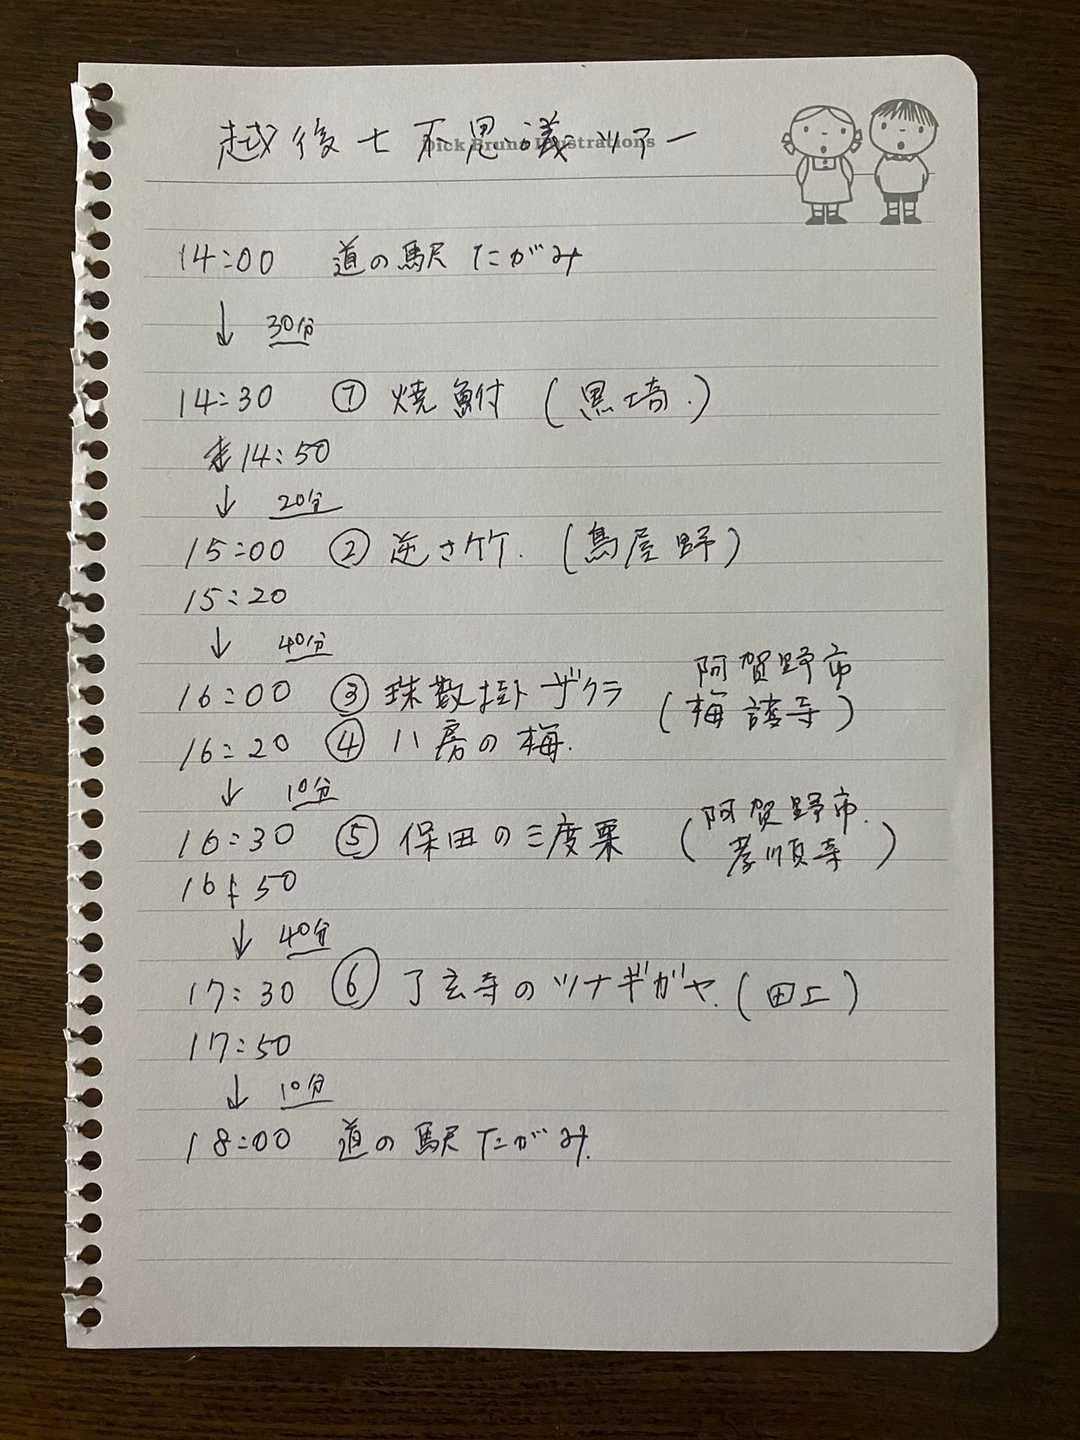 越後七不思議ツアー
Dick Bruna Illustrations
14:00 道の駅 たがみ
↓ 30分
14:30 ① 焼鮒 (黒埼.)
14:50
↓ 20分
15:00 ② 逆さ竹. (鳥屋野)
15:20
↓ 40分
16:00 ③ 珠数掛ザクラ (阿賀野市
16:20 ④ 八房の梅. 梅護寺)
↓ 10分
16:30 ⑤ 保田の三度栗 (阿賀野市.
16:50 孝順寺)
↓ 40分
17:30 ⑥ 了玄寺のツナギガヤ. (田上)
17:50
↓ 10分
18:00 道の駅 たがみ.